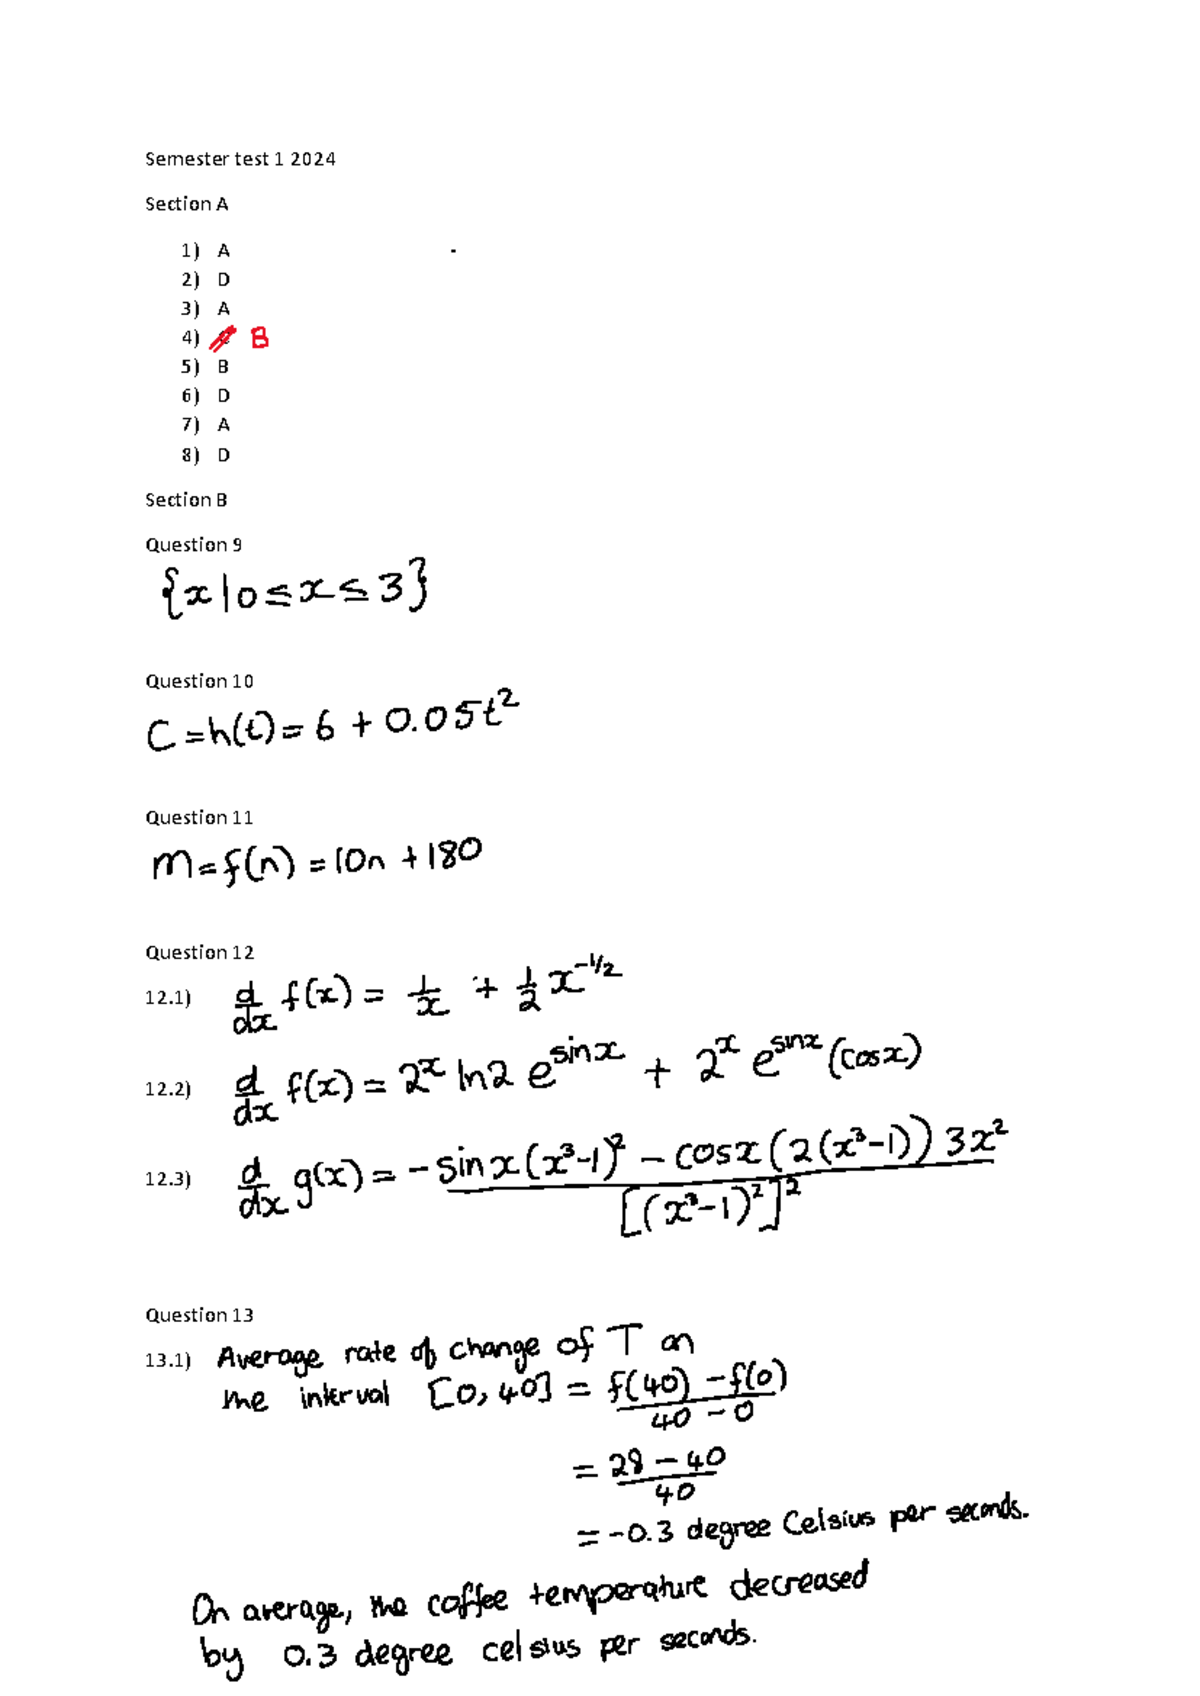 Semester test 1 2024
Section A
1) A
2) D
3) A
4) B
5) B
6) D
7) A
8) D
Section B
Question 9
{x|0≤x≤3}
Question 10
C=h(t)=6+0.05t²
Question 11
m=f(n)=10n+180
Question 12
12.1) d/dx f(x) = 1/x + 1/2 x^(-1/2)
12.2) d/dx f(x) = 2^x ln2 e^(sinx) + 2^x e^(sinx) (cosx)
12.3) d/dx g(x) = -sinx(x³-1)² - cosx(2(x³-1))3x² / [(x³-1)²]²
Question 13
13.1) Average rate of change of T on
the interval [0,40] = f(40)-f(0) / 40-0
= 28-40 / 40
= -0.3 degree Celsius per seconds.
On average, the coffee temperature decreased
by 0.3 degree celsius per seconds.